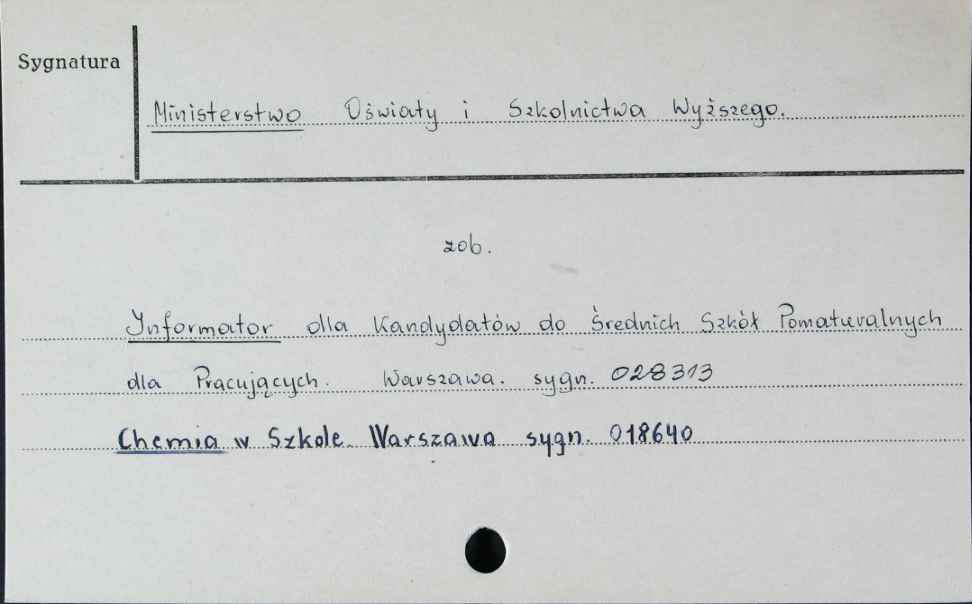 Sygnatura
Ministerstwo Oświaty i Szkolnictwa Wyższego.
zob.
Informator dla Kandydatów do Średnich Szkół Pomaturalnych
dla Pracujących. Warszawa. sygn. 028313
Chemia w Szkole. Warszawa sygn. 018640